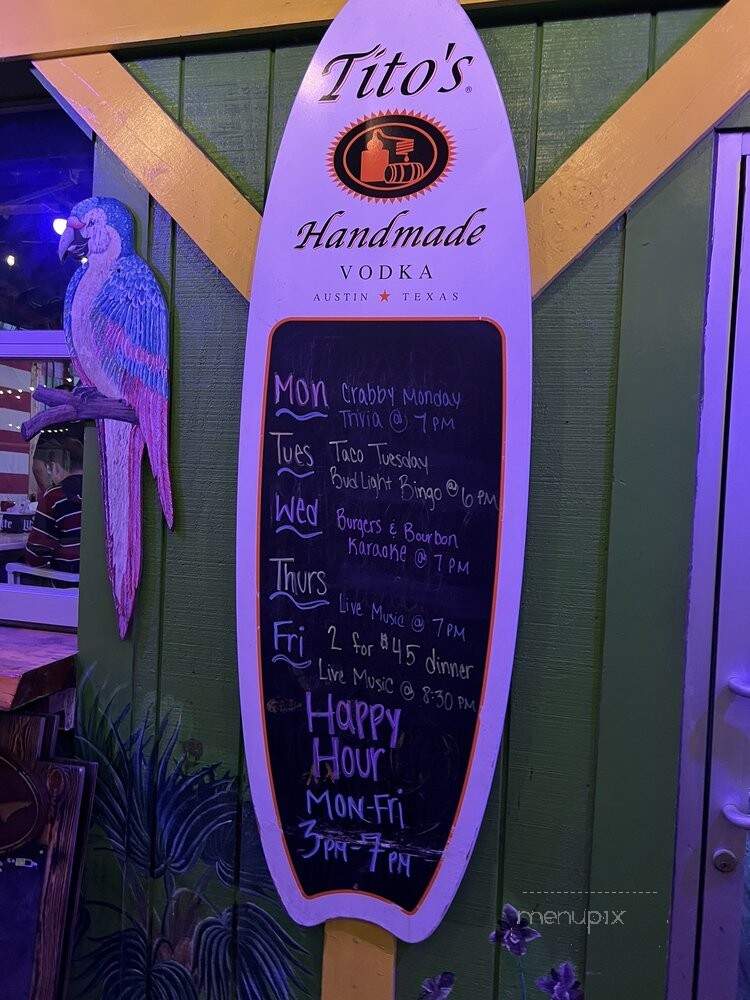 Tito's®
Handmade
VODKA
AUSTIN ★ TEXAS
Mon Crabby Monday
Trivia @ 7 PM
Tues Taco Tuesday
Bud Light Bingo @ 6 PM
Wed Burgers & Bourbon
Karaoke @ 7 PM
Thurs
Live Music @ 7PM
Fri 2 for $45 dinner
Live Music @ 8:30 PM
Happy
Hour
MON-Fri
3PM-7PM
menupix